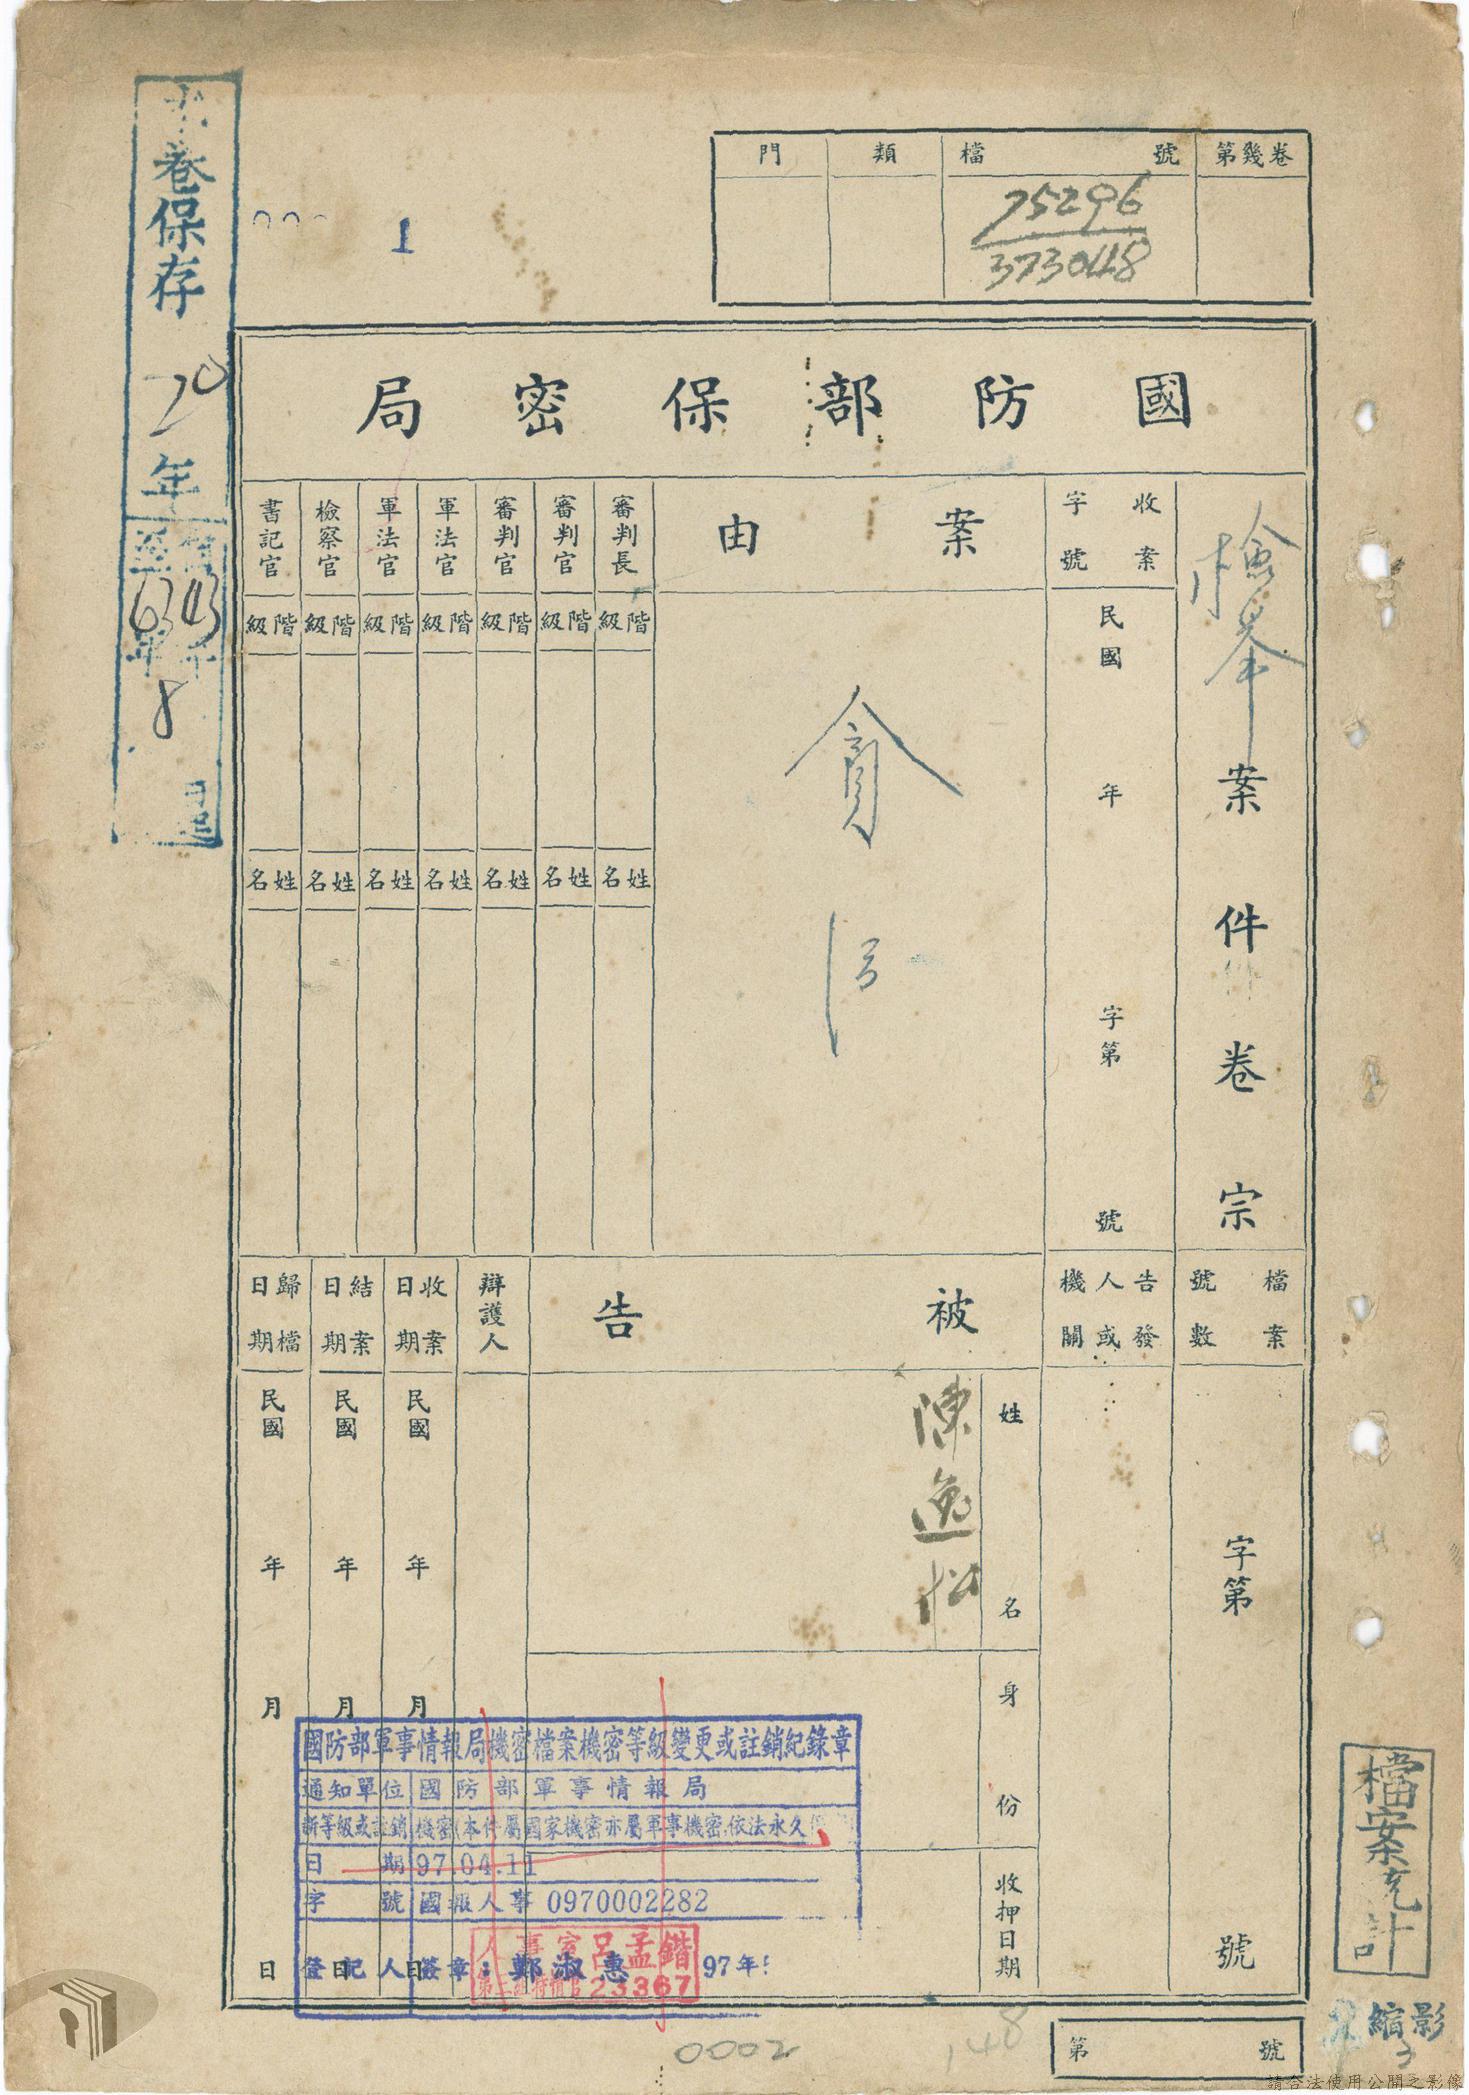 門 類 檔號 第幾卷
75296
373048
本卷保存20年
1
國防部保密局
檢舉案件卷宗
收案字號
民國 年 字第 號
案由
貪污
審判長 階級 姓名
審判官 階級 姓名
審判官 階級 姓名
軍法官 階級 姓名
軍法官 階級 姓名
檢察官 階級 姓名
書記官 階級 姓名
檔案號數
字第 號
告發人或機關
被告
姓名
陳逸松
身份
收押日期
辯護人
收案日期
民國 年 月 日
結案日期
民國 年 月 日
歸檔日期
民國 年 月 日
國防部軍事情報局機密檔案機密等級變更或註銷紀錄章
通知單位 國防部軍事情報局
新等級或註銷 機密(本件屬國家機密亦屬軍事機密,依法永久
日期 97.04.11
字號 國報人事 0970002282
登記人簽章:鄭淑惠 97年
人事室 呂孟鍇
23367
檔案克計
縮影
第 號
0002
148
請合法使用公開之影像